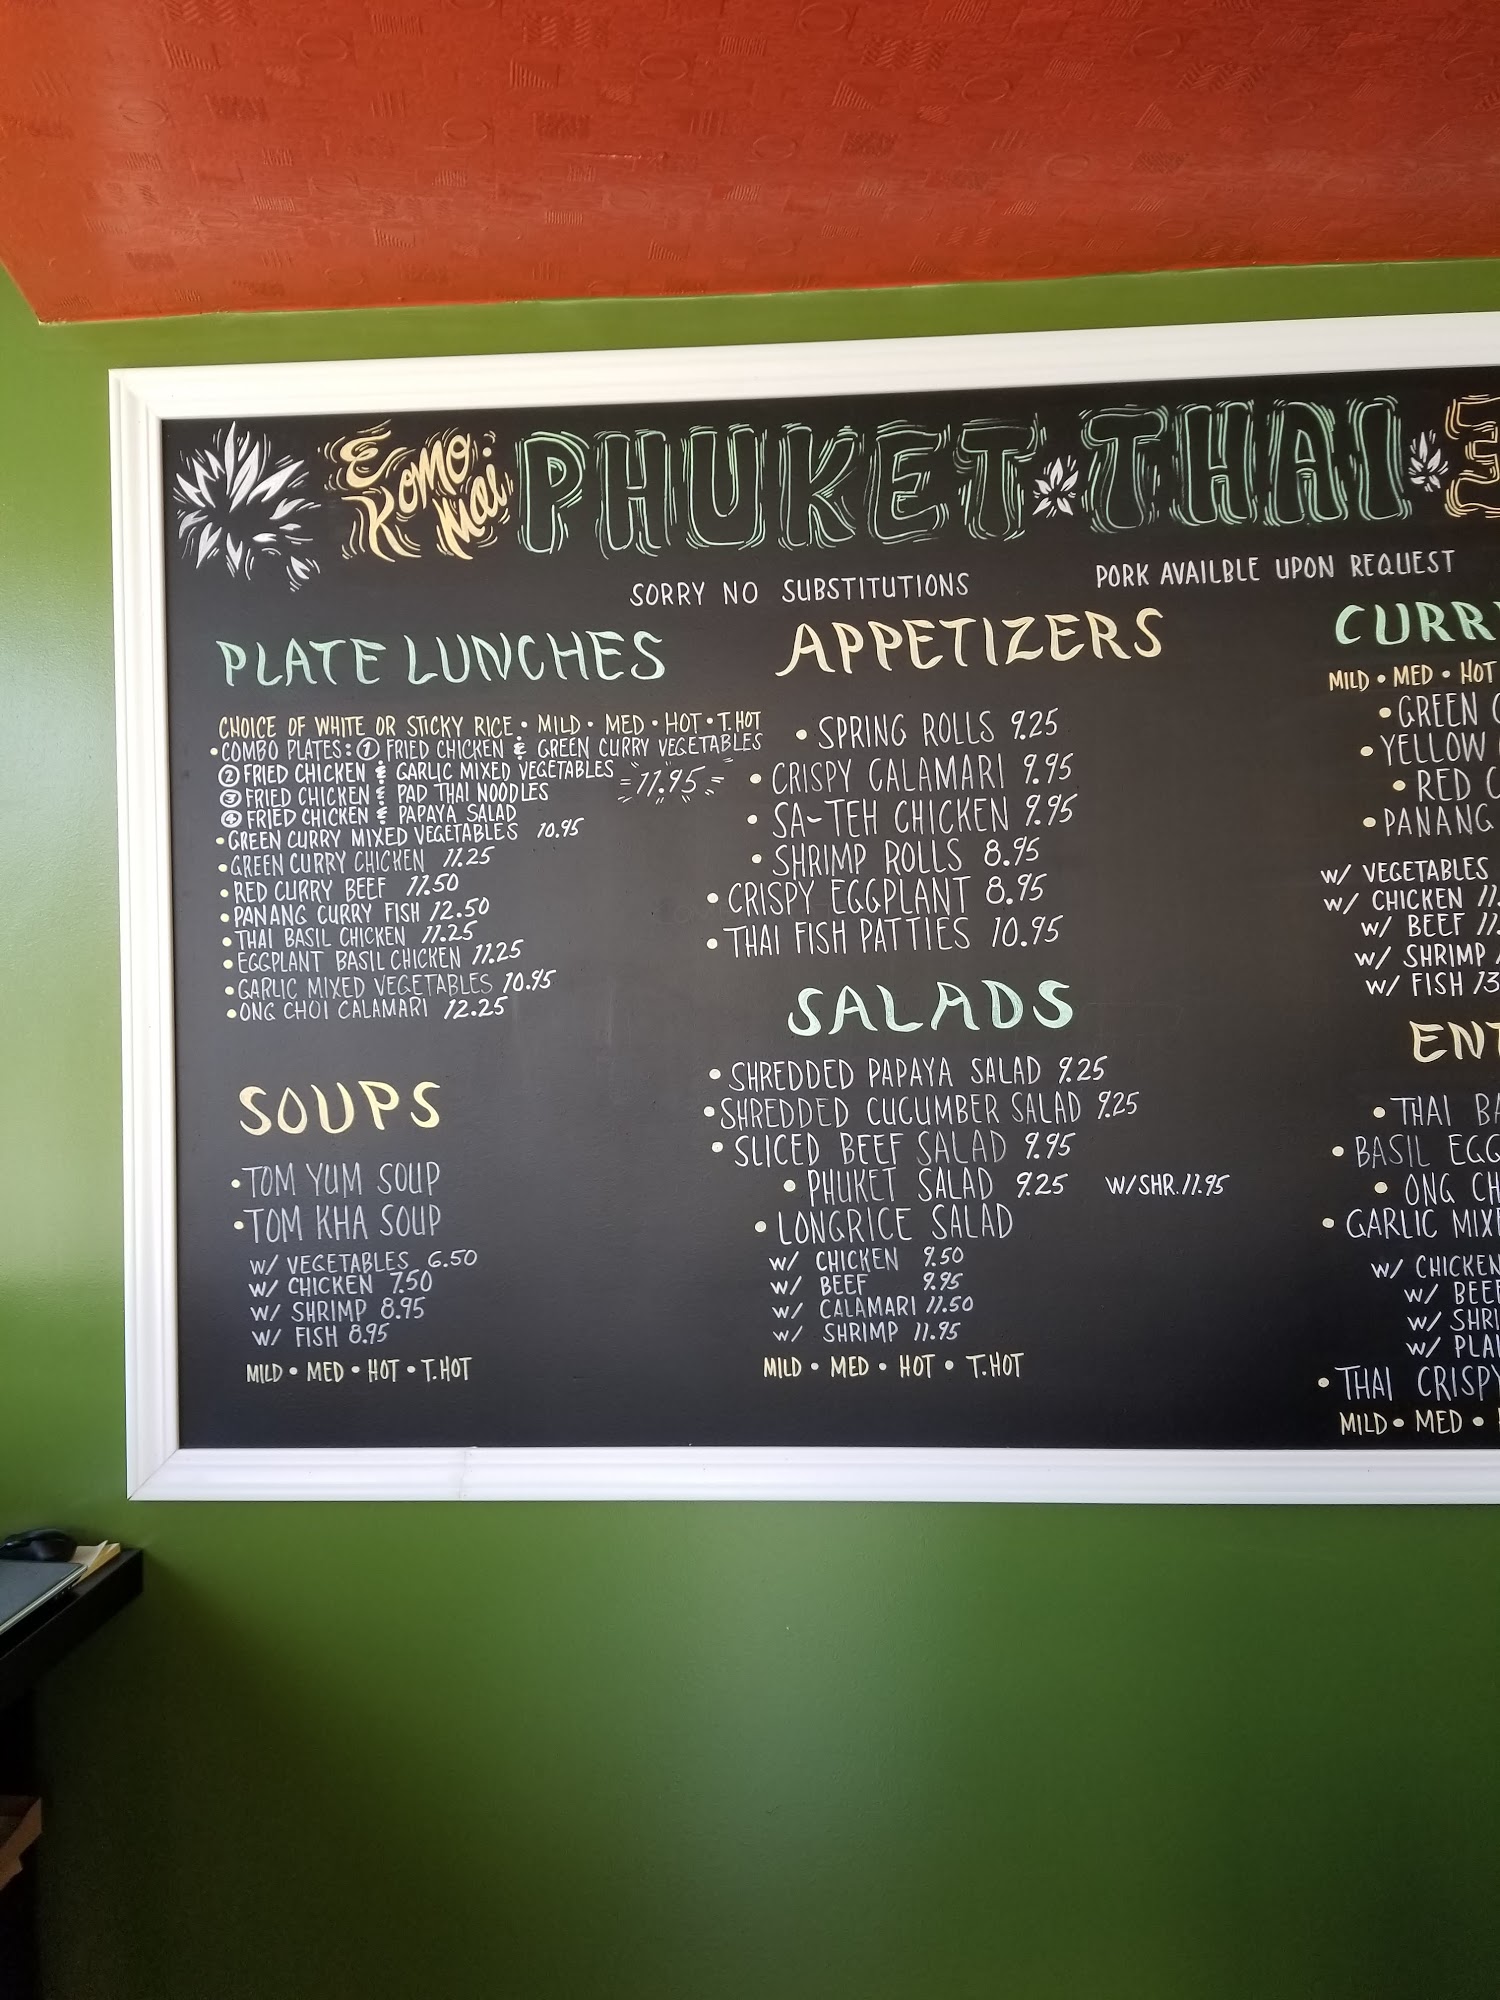 E Komo Mai PHUKET THAI
SORRY NO SUBSTITUTIONS
PORK AVAILBLE UPON REQUEST
PLATE LUNCHES
CHOICE OF WHITE OR STICKY RICE • MILD • MED • HOT • T.HOT
• COMBO PLATES: ① FRIED CHICKEN & GREEN CURRY VEGETABLES
② FRIED CHICKEN & GARLIC MIXED VEGETABLES
③ FRIED CHICKEN & PAD THAI NOODLES
④ FRIED CHICKEN & PAPAYA SALAD
11.95
• GREEN CURRY MIXED VEGETABLES 10.95
• GREEN CURRY CHICKEN 11.25
• RED CURRY BEEF 11.50
• PANANG CURRY FISH 12.50
• THAI BASIL CHICKEN 11.25
• EGGPLANT BASIL CHICKEN 11.25
• GARLIC MIXED VEGETABLES 10.95
• ONG CHOI CALAMARI 12.25
SOUPS
• TOM YUM SOUP
• TOM KHA SOUP
W/ VEGETABLES 6.50
W/ CHICKEN 7.50
W/ SHRIMP 8.95
W/ FISH 8.95
MILD • MED • HOT • T.HOT
APPETIZERS
• SPRING ROLLS 9.25
• CRISPY CALAMARI 9.95
• SA-TEH CHICKEN 9.95
• SHRIMP ROLLS 8.95
• CRISPY EGGPLANT 8.95
• THAI FISH PATTIES 10.95
SALADS
• SHREDDED PAPAYA SALAD 9.25
• SHREDDED CUCUMBER SALAD 9.25
• SLICED BEEF SALAD 9.95
• PHUKET SALAD 9.25 W/SHR. 11.95
• LONGRICE SALAD
W/ CHICKEN 9.50
W/ BEEF 9.95
W/ CALAMARI 11.50
W/ SHRIMP 11.95
MILD • MED • HOT • T.HOT
CURR
MILD • MED • HOT
• GREEN
• YELLOW
• RED
• PANANG
W/ VEGETABLES
W/ CHICKEN 11.
W/ BEEF 11.
W/ SHRIMP
W/ FISH 13
ENT
• THAI BA
• BASIL EGG
• ONG CH
• GARLIC MIX
W/ CHICKEN
W/ BEEF
W/ SHRI
W/ PLA
• THAI CRISPY
MILD • MED •